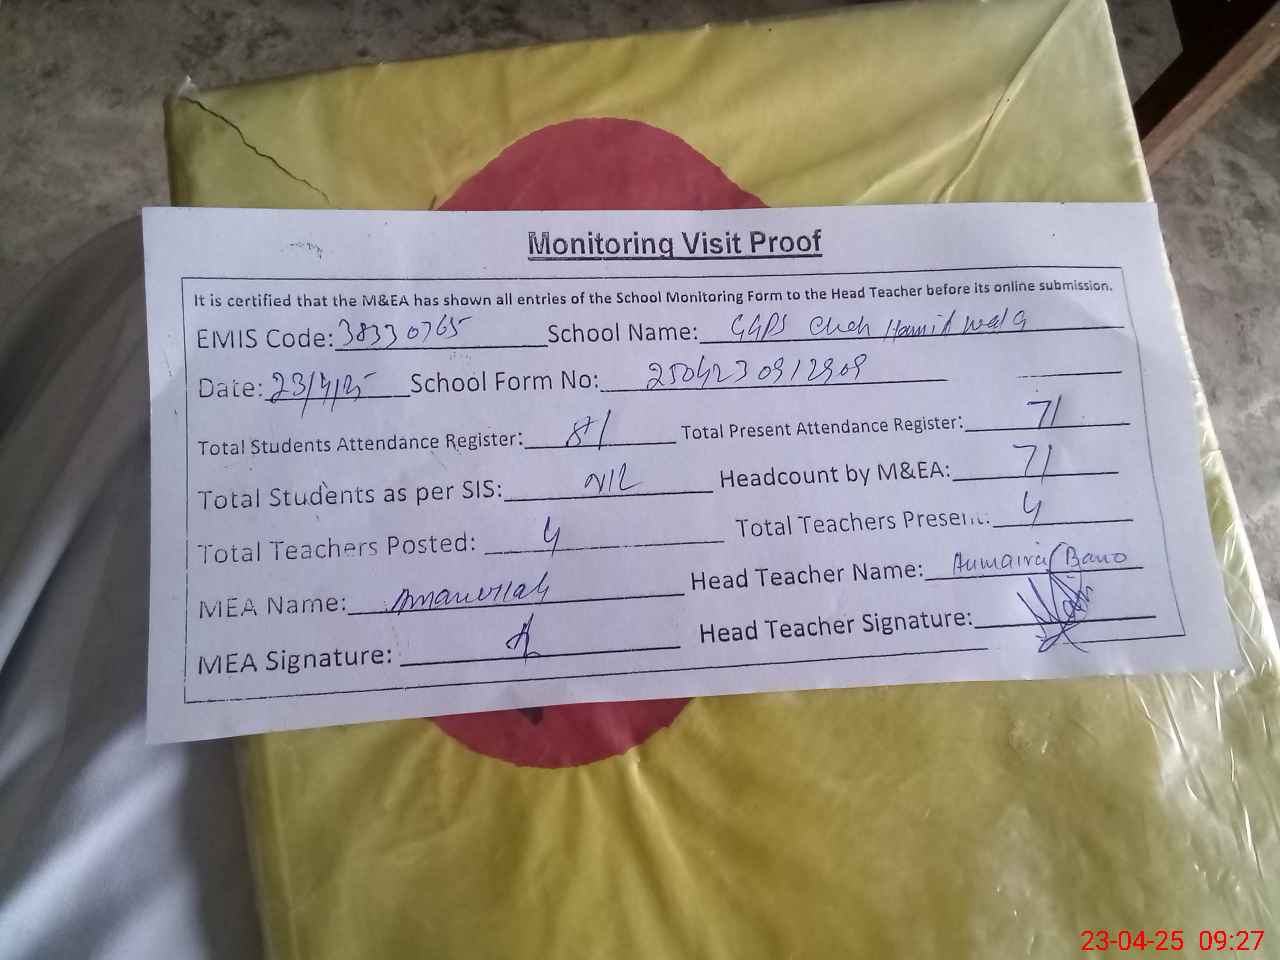 Monitoring Visit Proof
It is certified that the M&EA has shown all entries of the School Monitoring Form to the Head Teacher before its online submission.
EMIS Code: 38330765 School Name: GGPS Chah Hamid wala
Date: 23/4/25 School Form No: 2504230912909
Total Students Attendance Register: 81 Total Present Attendance Register: 71
Total Students as per SIS: NIL Headcount by M&EA: 71
Total Teachers Posted: 4 Total Teachers Present: 4
MEA Name: Amanullah Head Teacher Name: Humaira Bano
MEA Signature: Head Teacher Signature:
23-04-25 09:27